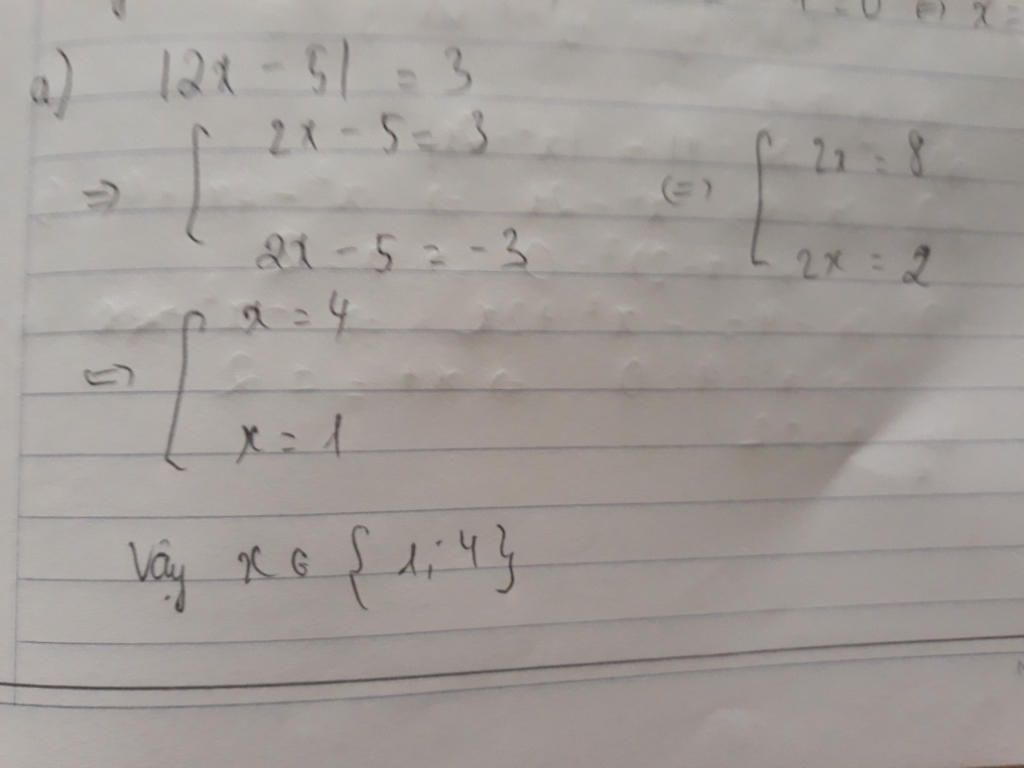 = 0 ⇔ x =
a) |2x - 5| = 3
⇒ [ 2x - 5 = 3 ⇔ [ 2x = 8
2x - 5 = -3 2x = 2
⇔ [ x = 4
x = 1
Vậy x ∈ { 1; 4 }